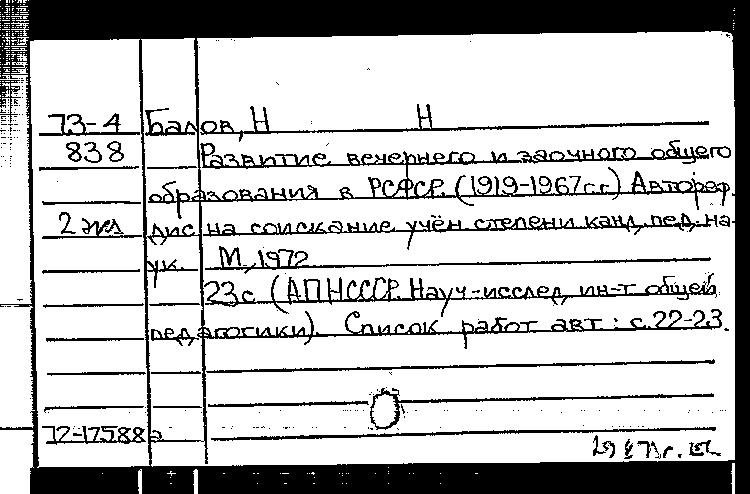 73-4 Балов, Н Н
838 Развитие вечернего и заочного общего
образования в РСФСР. (1919-1967гг.) Автореф.
2 экз дис на соискание учён степени канд. пед. на-
ук. М., 1972
23с (АПНСССР. Науч-исслед. ин-т общей
педагогики). Список работ авт.: с.22-23.
72-17588а